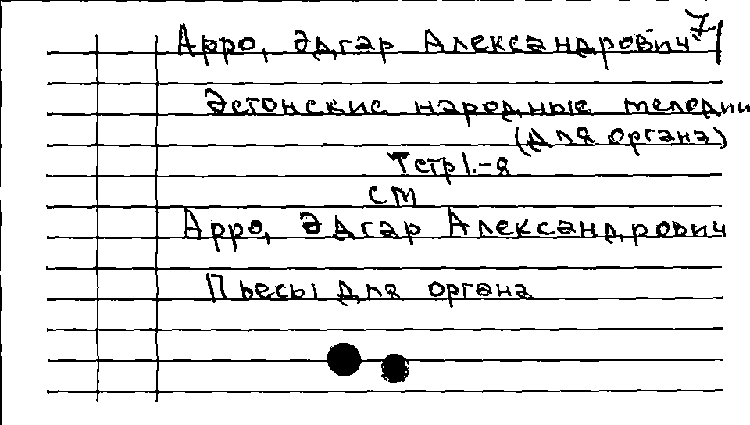 7
Арро, Эдгар Александрович
Эстонские народные мелодии
(для органа)
Тетр1.-я
см
Арро, Эдгар Александрович
Пьесы для органа